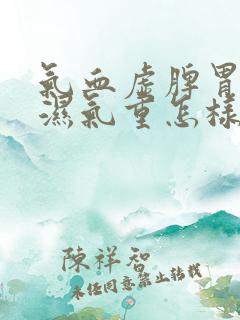 氣血虛脾胃
濕氣重怎樣
陳祥智
未经同意禁止转载